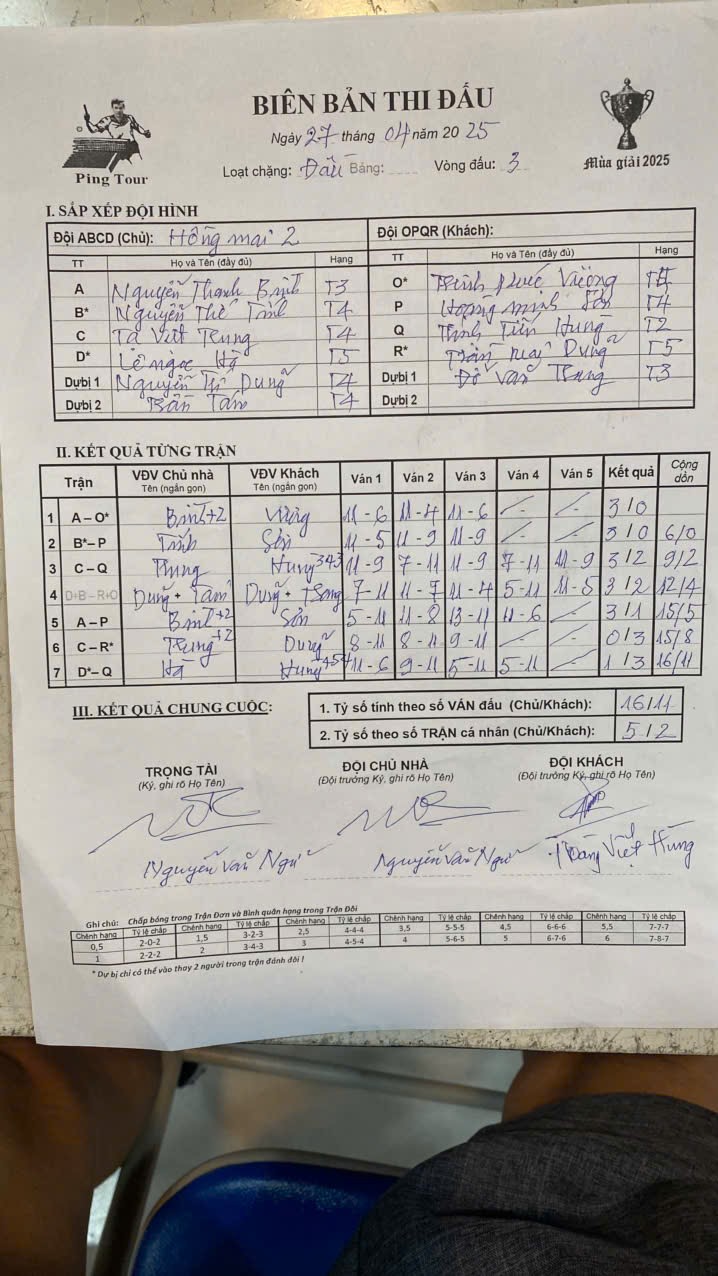 BIÊN BẢN THI ĐẤU
Ngày 27 tháng 04 năm 20 25
Ping Tour
Loạt chặng: Đầu Bảng: Vòng đấu: 3
Mùa giải 2025
I. SẮP XẾP ĐỘI HÌNH
Đội ABCD (Chủ): Hồng mai 2 Đội OPQR (Khách):
TT Họ và Tên (đầy đủ) Hạng TT Họ và Tên (đầy đủ) Hạng
A Nguyễn Thanh Bình T3 O* Trịnh Vường
B* Nguyễn Thế Tính T4 P Hoàng minh Sơn T4
C Tạ Việt Trung T4 Q Tiến Hưng T2
D* Lê ngọc Hà T5 R* Trần Dũng T5
Dự bị 1 Nguyễn Dung T4 Dự bị 1 Đỗ Văn T3
Dự bị 2 Trần Tám T4 Dự bị 2
II. KẾT QUẢ TỪNG TRẬN
Trận VĐV Chủ nhà Tên (ngắn gọn) VĐV Khách Tên (ngắn gọn) Ván 1 Ván 2 Ván 3 Ván 4 Ván 5 Kết quả Cộng dồn
1 A – O* Bình+2 Vường 11 - 6 11 - 4 11 - 6 - - 3 / 0
2 B* – P Tính Sơn 11 - 5 11 - 9 11 - 9 - - 3 / 0 6/0
3 C – Q Trung Hưng 343 11 - 9 7 - 11 11 - 9 7 - 11 11 - 9 3 / 2 9/2
4 D+B – R+O Dung + Tám Dũng + 7 - 11 11 - 7 11 - 4 5 - 11 11 - 5 3 / 2 12/4
5 A – P Bình+2 Sơn 5 - 11 11 - 8 13 - 11 11 - 6 - 3 / 1 15/5
6 C – R* Trung+2 Dũng 8 - 11 8 - 11 9 - 11 - - 0 / 3 15/8
7 D* – Q Hà Hưng 454 11 - 6 9 - 11 5 - 11 5 - 11 - 1 / 3 16/11
III. KẾT QUẢ CHUNG CUỘC:
1. Tỷ số tính theo số VÁN đấu (Chủ/Khách): 16/11
2. Tỷ số theo số TRẬN cá nhân (Chủ/Khách): 5/2
TRỌNG TÀI ĐỘI CHỦ NHÀ ĐỘI KHÁCH
(Ký, ghi rõ Họ Tên) (Đội trưởng Ký, ghi rõ Họ Tên) (Đội trưởng Ký, ghi rõ Họ Tên)
Nguyễn Văn Nguyễn Văn Hoàng Việt Hùng
Ghi chú: Chấp bóng trong Trận Đơn và Bình quân hạng trong Trận Đôi
Chênh hạng Tỷ lệ chấp Chênh hạng Tỷ lệ chấp Chênh hạng Tỷ lệ chấp Chênh hạng Tỷ lệ chấp Chênh hạng Tỷ lệ chấp Chênh hạng Tỷ lệ chấp
0,5 2-0-2 1,5 3-2-3 2,5 4-4-4 3,5 5-5-5 4,5 6-6-6 5,5 7-7-7
1 2-2-2 2 3-4-3 3 4-5-4 4 5-6-5 5 6-7-6 6 7-8-7
* Dự bị chỉ có thể vào thay 2 người trong trận đánh đôi !